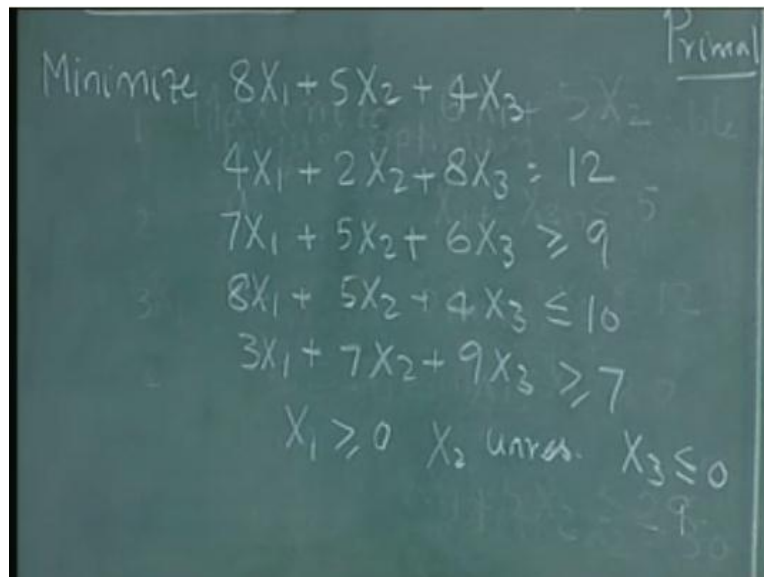 Primal
Minimize 8X₁ + 5X₂ + 4X₃
4X₁ + 2X₂ + 8X₃ = 12
7X₁ + 5X₂ + 6X₃ ≥ 9
8X₁ + 5X₂ + 4X₃ ≤ 10
3X₁ + 7X₂ + 9X₃ ≥ 7
X₁ ≥ 0 X₂ unres. X₃ ≤ 0